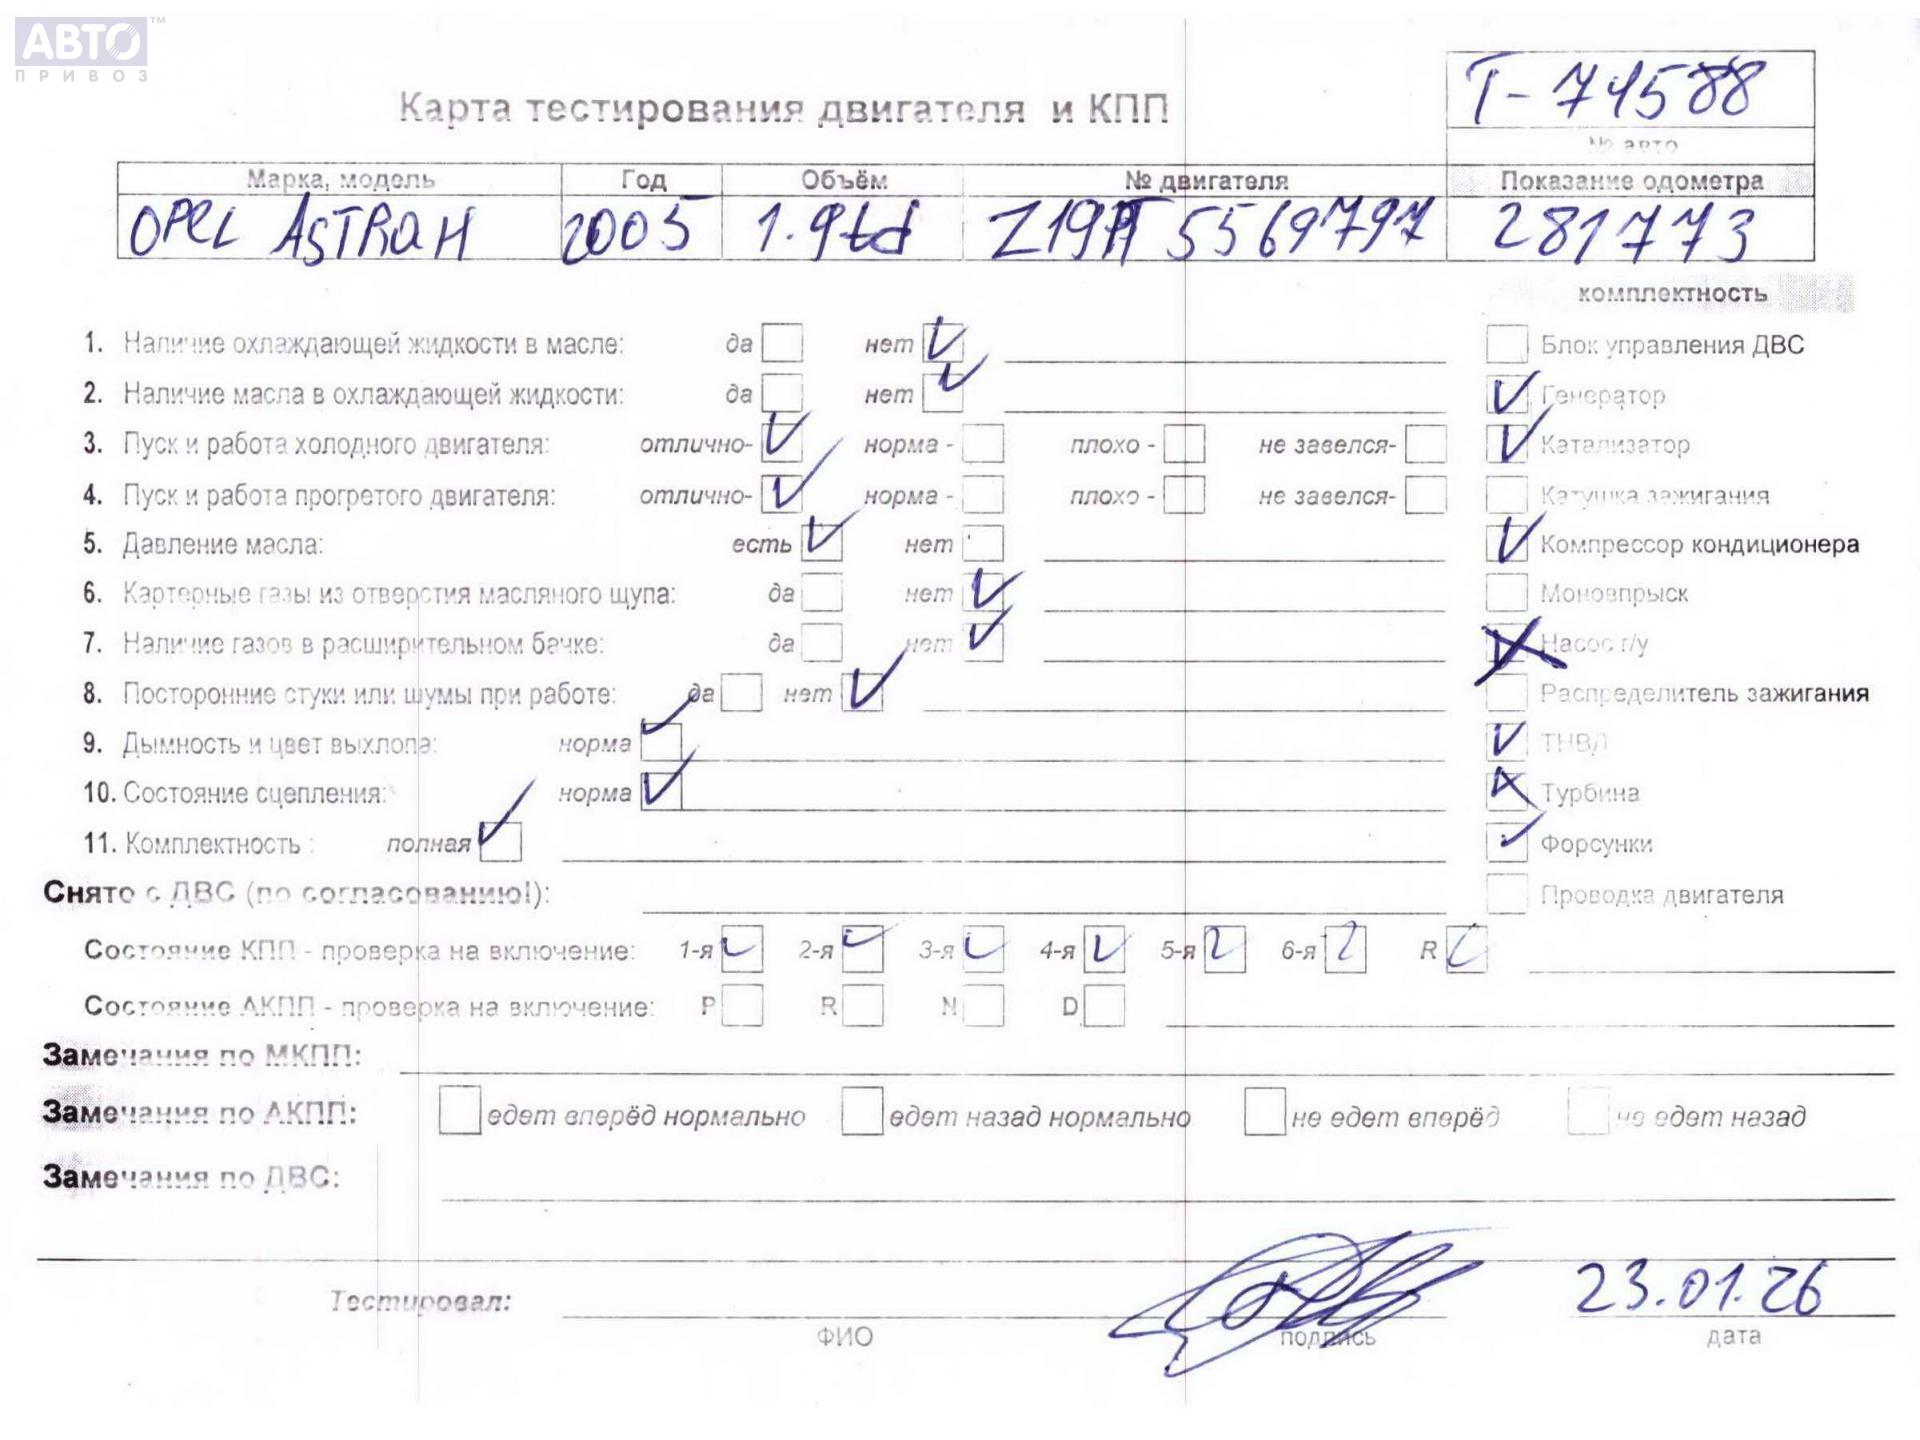 АВТО™
ПРИВОЗ
T-74588
Карта тестирования двигателя и КПП
№ авто
Марка, модель Год Объём № двигателя Показание одометра
OPEL ASTRA H 2005 1.9td Z19DT 5569797 281773
комплектность
1. Наличие охлаждающей жидкости в масле: да нет Блок управления ДВС
2. Наличие масла в охлаждающей жидкости: да нет Генератор
3. Пуск и работа холодного двигателя: отлично- норма - плохо - не завелся- Катализатор
4. Пуск и работа прогретого двигателя: отлично- норма - плохо - не завелся- Катушка зажигания
5. Давление масла: есть нет Компрессор кондиционера
6. Картерные газы из отверстия масляного щупа: да нет Моновпрыск
7. Наличие газов в расширительном бачке: да нет Насос г/у
8. Посторонние стуки или шумы при работе: да нет Распределитель зажигания
9. Дымность и цвет выхлопа: норма ТНВД
10. Состояние сцепления: норма Турбина
11. Комплектность : полная Форсунки
Снято с ДВС (по согласованию!): Проводка двигателя
Состояние КПП - проверка на включение: 1-я 2-я 3-я 4-я 5-я 6-я R
Состояние АКПП - проверка на включение: P R N D
Замечания по МКПП:
Замечания по АКПП: едет вперёд нормально едет назад нормально не едет вперёд не едет назад
Замечания по ДВС:
Тестировал: 23.01.26
ФИО подпись дата